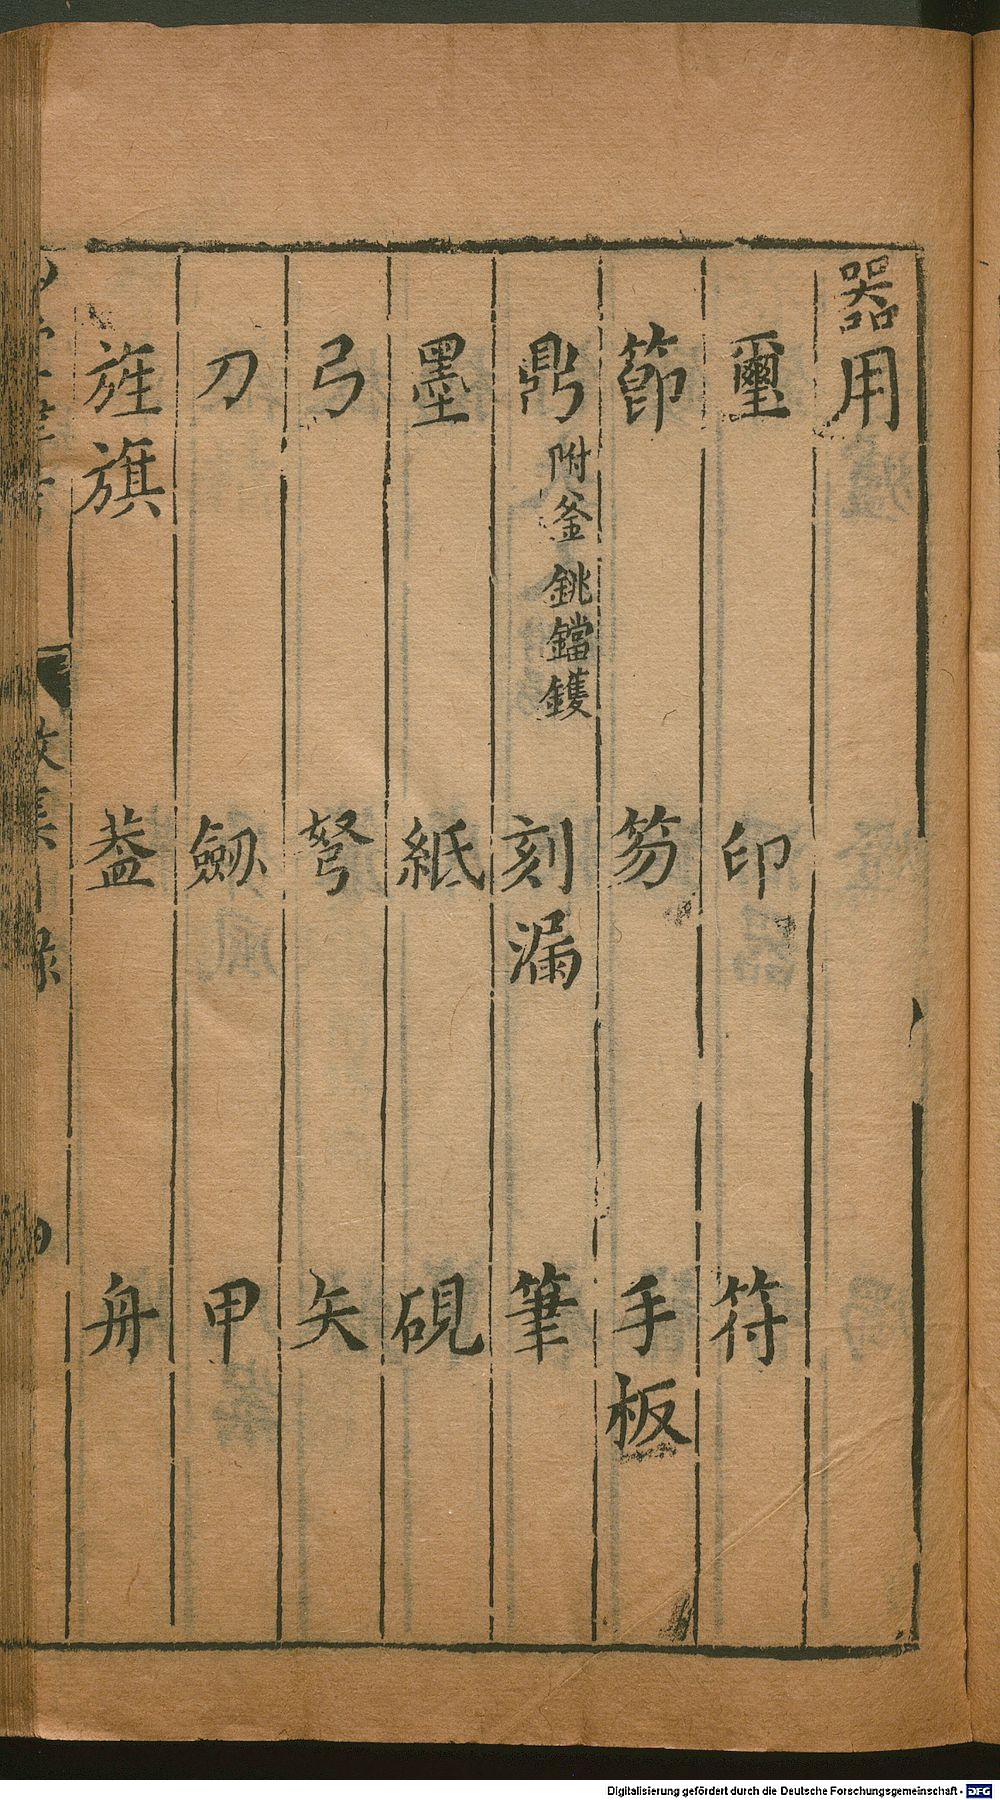 器用
璽 印 符
節 笏 手板
鼎 附釜銚鐺鑊 刻漏 筆
墨 紙 硯
弓 弩 矢
刀 劔 甲
旌旗 葢 舟
Digitalisierung gefördert durch die Deutsche Forschungsgemeinschaft - DFG